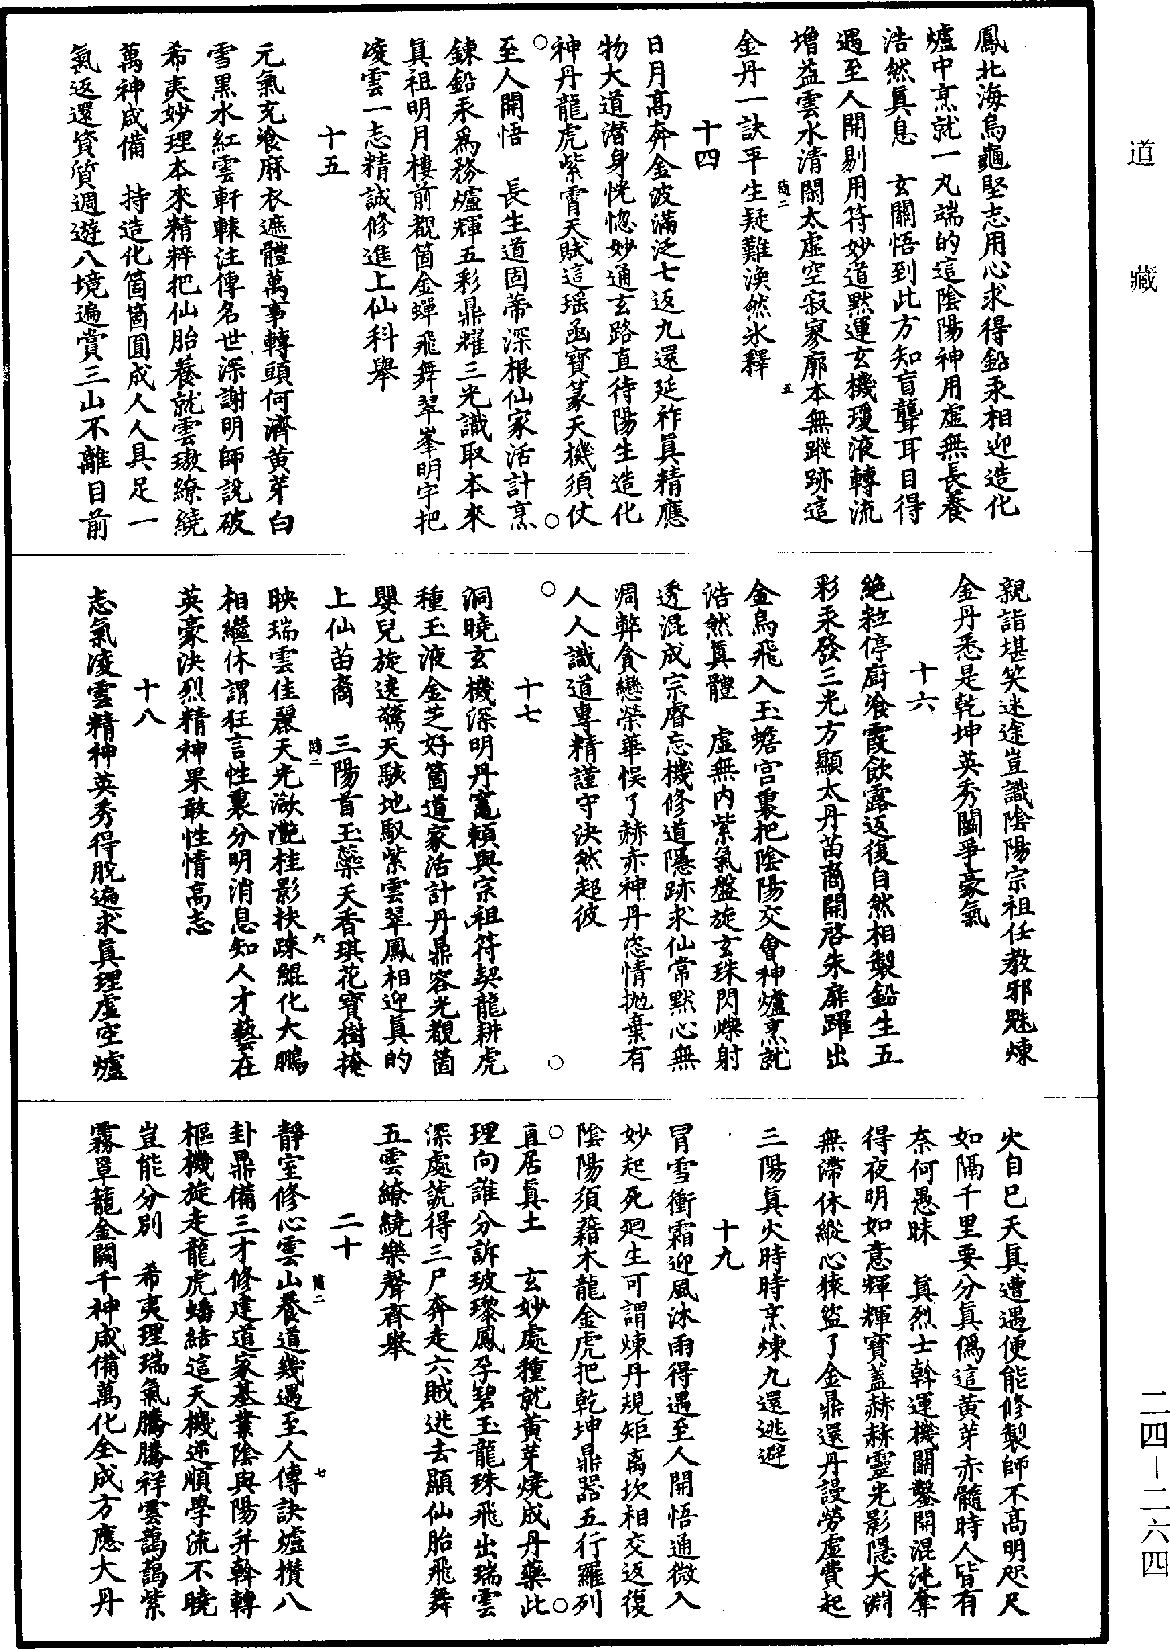 道藏
鳳北海烏龜堅志用心求得鉛汞相迎造化
爐中烹就一丸端的這陰陽神用虛無長養
浩然真息　玄關悟到此方知盲聾耳目得
遇至人開剔用符妙道默運玄機瓊液轉流
增益雲水清閑太虛空寂寥廓本無蹤跡這
金丹一訣平生疑難渙然氷釋
十四
日月高奔金波滿泛七返九還延祚真精應
物大道潛身恍惚妙通玄路直待陽生造化
神丹龍虎紫霄天賦這瑶函寶篆天機須仗
至人開悟　長生道固蒂深根仙家活計烹
鍊鉛汞爲務爐輝五彩鼎耀三光識取本來
真祖明月樓前覩箇金蟬飛舞翠峯明宇把
凌雲一志精誠修進上仙科舉
十五
元氣充飡麻衣遮體萬事轉頭何濟黄芽白
雪黑水紅雲軒轅注傳名世深謝明師說破
希夷妙理本來精粹把仙胎養就雲璈繚繞
萬神咸備　持造化箇箇圓成人人具足一
氣返還資質週遊八境遍賞三山不離目前
親詣堪笑迷途豈識陰陽宗祖任教邪魅煉
金丹悉是乾坤英秀闘爭豪氣
十六
絶粒停厨飡霞飲露返復自然相製鉛生五
彩汞發三光方顯太丹苗裔開啓朱扉躍出
金烏飛入玉蟾宮裏把陰陽交會神爐烹就
浩然真體　虛無内紫氣盤旋玄珠閃爍射
透混成宗眉忘機修道隱跡求仙常默心無
凋弊貪戀榮華悮了赫赤神丹恣情拋棄有
人人識道專精謹守決然超彼
十七
洞曉玄機深明丹竈頼與宗祖符契龍耕虎
種玉液金芝好箇道家活計丹鼎容光覩箇
嬰兒旋遶驚天駭地馭紫雲翠鳳相迎真的
上仙苗裔　三陽首玉蘂天香琪花寶樹掩
映瑞雲佳麗天光瀲灔桂影扶踈鯤化大鵬
相繼休謂狂言性裏分明消息知人才藝在
英豪決烈精神果敢性情高志
十八
志氣凌雲精神英秀得脫遍求真理虛空爐
火自巳天真遭遇便能修製師不高明咫尺
如隔千里要分真僞這黄芽赤髓時人皆有
奈何愚昧　真烈士斡運機關鑿開混沌奪
得夜明如意輝輝寶蓋赫赫靈光影隱大淵
無滯休縱心猿盜了金鼎還丹謾勞虛費起
三陽真火時時烹煉九還逃避
十九
冒雪衝霜迎風沐雨得遇至人開悟通微入
妙起死廻生可謂煉丹規矩离坎相交返復
陰陽須藉木龍金虎把乾坤鼎器五行羅列
直居真土　玄妙處種就黄芽燒成丹藥此
理向誰分訴玻瓈鳳孕碧玉龍珠飛出瑞雲
深處號得三尸奔走六賊逃去顯仙胎飛舞
五雲繚繞樂聲齊舉
二十
靜室修心雲山養道幾遇至人傳訣爐攢八
卦鼎備三才修建道家基業陰與陽升斡轉
樞機旋走龍虎蟠結這天機逆順學流不曉
豈能分別　希夷理瑞氣騰騰祥雲藹藹紫
霧罩籠金闕千神咸備萬化全成方應大丹
二四－二六四